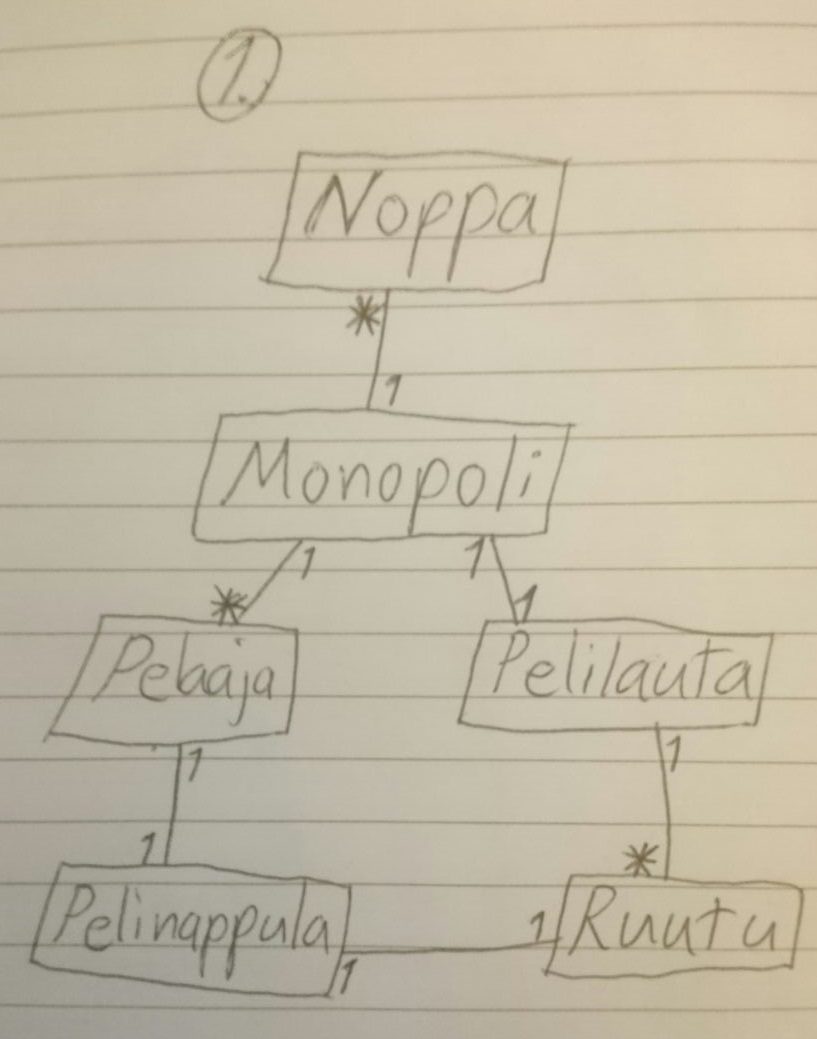 1.
Noppa
*
1
Monopoli
1 1
* 1
Pelaaja Pelilauta
1 1
1 *
Pelinappula 1 Ruutu
1